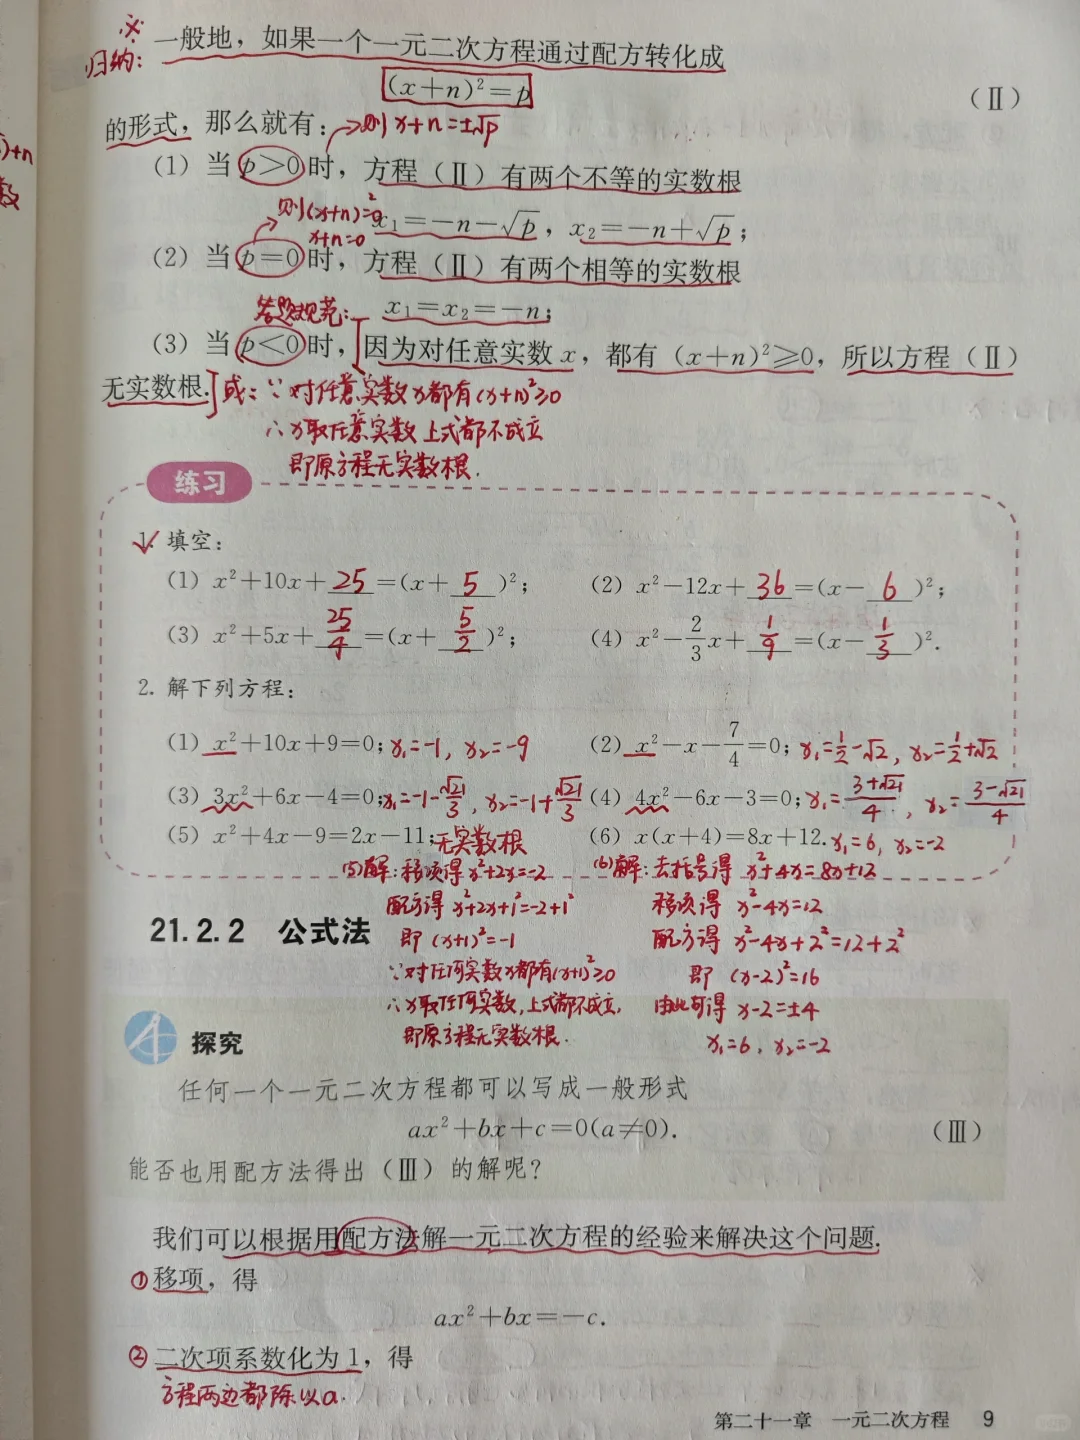 ※
归纳：
一般地，如果一个一元二次方程通过配方转化成
(x+n)²=p （Ⅱ）
的形式，那么就有：→则x+n=±√p
)+n
数
（1）当p>0时，方程（Ⅱ）有两个不等的实数根
则(x+n)²=0
x+n=0
x₁=-n-√p，x₂=-n+√p；
（2）当p=0时，方程（Ⅱ）有两个相等的实数根
答题规范：
x₁=x₂=-n；
（3）当p<0时，[因为对任意实数x，都有（x+n）²≥0，所以方程（Ⅱ）
无实数根.]或：∵对任意实数x都有(x+n)²≥0
∴x取任意实数上式都不成立
即原方程无实数根.
练习
1. 填空：
（1）x²+10x+25=(x+5)²；（2）x²-12x+36=(x-6)²；
（3）x²+5x+25/4=(x+5/2)²；（4）x²-2/3x+1/9=(x-1/3)².
2. 解下列方程：
（1）x²+10x+9=0；x₁=-1，x₂=-9 （2）x²-x-7/4=0；x₁=1/2-√2，x₂=1/2+√2
（3）3x²+6x-4=0；x₁=-1-√21/3，x₂=-1+√21/3 （4）4x²-6x-3=0；x₁=3+√21/4，x₂=3-√21/4
（5）x²+4x-9=2x-11；无实数根 （6）x(x+4)=8x+12. x₁=6，x₂=-2
(5)解：移项得 x²+2x=-2
配方得 x²+2x+1²=-2+1²
即 (x+1)²=-1
∵对任何实数x都有(x+1)²≥0
∴x取任何实数，上式都不成立，
即原方程无实数根.
(6)解：去括号得 x²+4x=8x+12
移项得 x²-4x=12
配方得 x²-4x+2²=12+2²
即 (x-2)²=16
由此可得 x-2=±4
x₁=6，x₂=-2
21.2.2 公式法
探究
任何一个一元二次方程都可以写成一般形式
ax²+bx+c=0(a≠0). （Ⅲ）
能否也用配方法得出（Ⅲ）的解呢？
我们可以根据用配方法解一元二次方程的经验来解决这个问题.
①移项，得
ax²+bx=-c.
②二次项系数化为1，得
方程两边都除以a.
第二十一章 一元二次方程 9